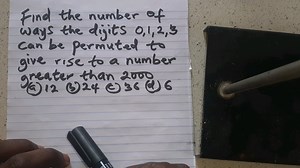 Find the number of
ways the digits 0,1,2,3
can be permuted to
give rise to a number
greater than 2000
(a) 12 (b) 24 (c) 36 (d) 6